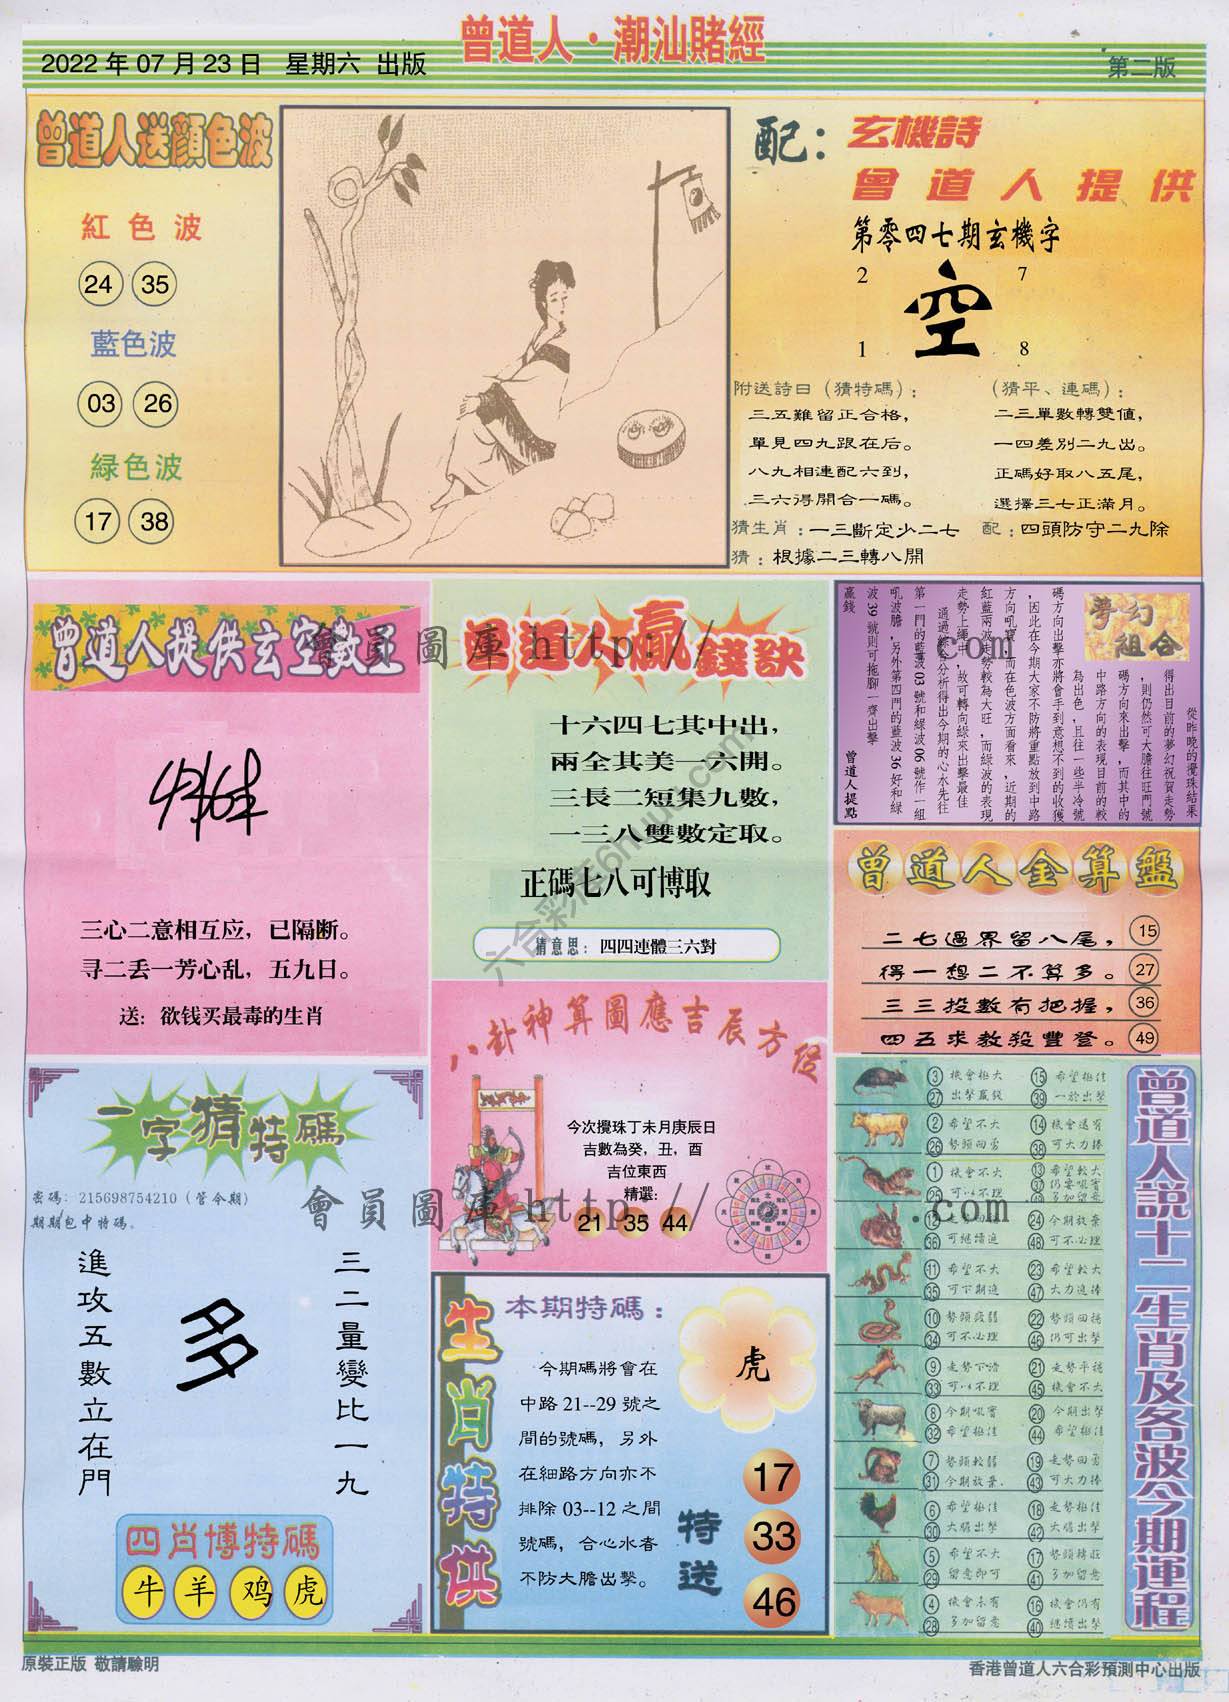 曾道人·潮汕賭經
2022 年 07 月 23 日 星期六 出版
第二版
曾道人送顏色波
紅色波
24 35
藍色波
03 26
緑色波
17 38
配：
玄機詩
曾道人提供
第零四七期玄機字
2 7
空
1 8
附送詩日（猜特碼）：
三五難留正合格，
單見四九跟在后。
八九相連配六到，
三六得開合一碼。
（猜平、連碼）：
二三單數轉雙値，
一四差別二九出。
正碼好取八五尾，
選擇三七正滿月。
猜生肖：一三斷定少二七
配：四頭防守二九除
猜：根據二三轉八開
曾道人提供玄空數王
三心二意相互应，已隔断。
寻二丢一芳心乱，五九日。
送：欲钱买最毒的生肖
曾道人贏錢訣
十六四七其中出，
兩全其美一六開。
三長二短集九數，
一三八雙數定取。
正碼七八可博取
猜意思：四四連體三六對
夢幻組合
從昨晚的攪珠結果
得出目前的夢幻祝賀走勢
，則仍然可大膽往旺門號
碼方向來出擊，而其中的
中路方向的表現目前的較
為出色，且往一些半冷號
碼方向出擊亦將會手到意想不到的收獲
，因此在今期大家不防將重點放到中路
方向吼寶，而在色波方面看來，近期的
紅藍兩波走勢較為大旺，而綠波的表現
走勢上繩中，故可轉向綠來出擊最佳
通過綜合分析得出今期的心水先往
第一門的藍波 03 號和綠波 06 號作一組
吼波膽，另外第四門的藍波 36 好和綠
波 39 號則可拖腳一齊出擊
贏錢
曾道人提點
曾道人金算盤
二七過界留八尾， 15
得一想二不算多。 27
三三投數有把握， 36
四五求教殺豐登。 49
八卦神算圖應吉辰方位
今次攪珠丁未月庚辰日
吉數為癸，丑，酉
吉位東西
精選：
21 35 44
一字猜特碼
密碼：215698754210（管今期）
期期包中特碼。
三二量變比一九
多
進攻五數立在門
四肖博特碼
牛 羊 鸡 虎
生肖特供
本期特碼：
今期碼將會在
中路 21--29 號之
間的號碼，另外
在細路方向亦不
排除 03--12 之間
號碼，合心水者
不防大膽出擊。
虎
特送
17
33
46
曾道人說十二生肖及各波今期運程
3 機會極大 15 希望極佳
27 出擊贏錢 39 一於出擊
2 希望不大 14 機會還有
26 勢頭回勇 38 可大力捧
1 機會不大 13 希望較大
可以不理 37 仍要吸寶
多加留意
24 今期放棄
36 可繼續追 48 可不必理
11 希望不大 23 希望較大
35 可下期追 47 大力追捧
10 勢頭疲弱 22 勢頭回穩
34 可不必理 46 仍可出擊
9 走勢下滑 21 走勢平穩
33 可以不理 45 機會不大
8 今期吸寶 20 今期出擊
32 希望極佳 44 希望極佳
7 勢頭較弱 19 走勢回勇
31 今期放棄. 43 可大力捧
6 希望極佳 18 走勢極佳
30 大膽出擊 42 大膽出擊
5 希望不大 17 勢頭轉旺
29 留意即可 41 多加留意
4 機會未有 16 機會仍有
28 多加留意 40 繼續出擊
會員圖庫 http:// .com
會員圖庫 http:// .com
六合彩库6huu.com
原裝正版 敬請驗明
香港曾道人六合彩預測中心出版